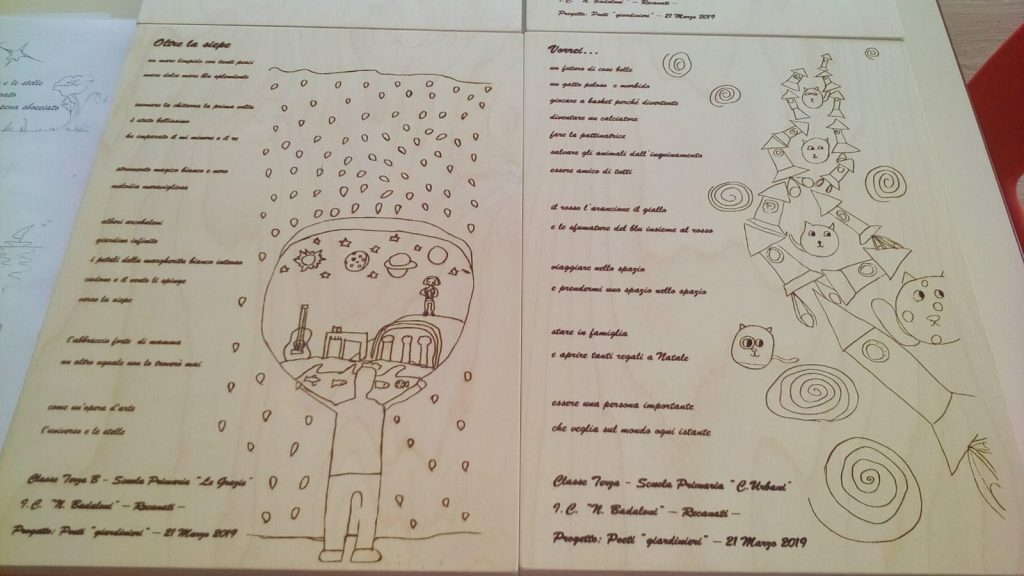 I.C. "N. Badaloni" - Recanati -
Progetto: Poeti "giardinieri" - 21 Marzo 2019
e le stelle
sboccato
Oltre la siepe
un mare limpido con tanti pesci
mare dolce mare blu splendente
suonare la chitarra la prima volta
è stato bellissimo
ho imparato il mi minore e il re
strumento magico bianco e nero
melodia meravigliosa
alberi arcobaleni
giardino infinito
i petali della margherita bianco intenso
cadono e il vento li spinge
verso la siepe
l'abbraccio forte di mamma
un altro uguale non lo troverò mai
come un'opera d'arte
l'universo e le stelle
Classe Terza B - Scuola Primaria "Le Grazie"
I.C. "N. Badaloni" - Recanati -
Progetto: Poeti "giardinieri" - 21 Marzo 2019
Vorrei...
un futuro di cose belle
un gatto peloso e morbido
giocare a basket perchè divertente
diventare un calciatore
fare la pattinatrice
salvare gli animali dall'inquinamento
essere amico di tutti
il rosso l'arancione il giallo
e le sfumature del blu insieme al rosso
viaggiare nello spazio
e prendermi uno spazio nello spazio
stare in famiglia
e aprire tanti regali a Natale
essere una persona importante
che veglia sul mondo ogni istante
Classe Terza - Scuola Primaria "C.Urbani"
I.C. "N. Badaloni" - Recanati -
Progetto: Poeti "giardinieri" - 21 Marzo 2019